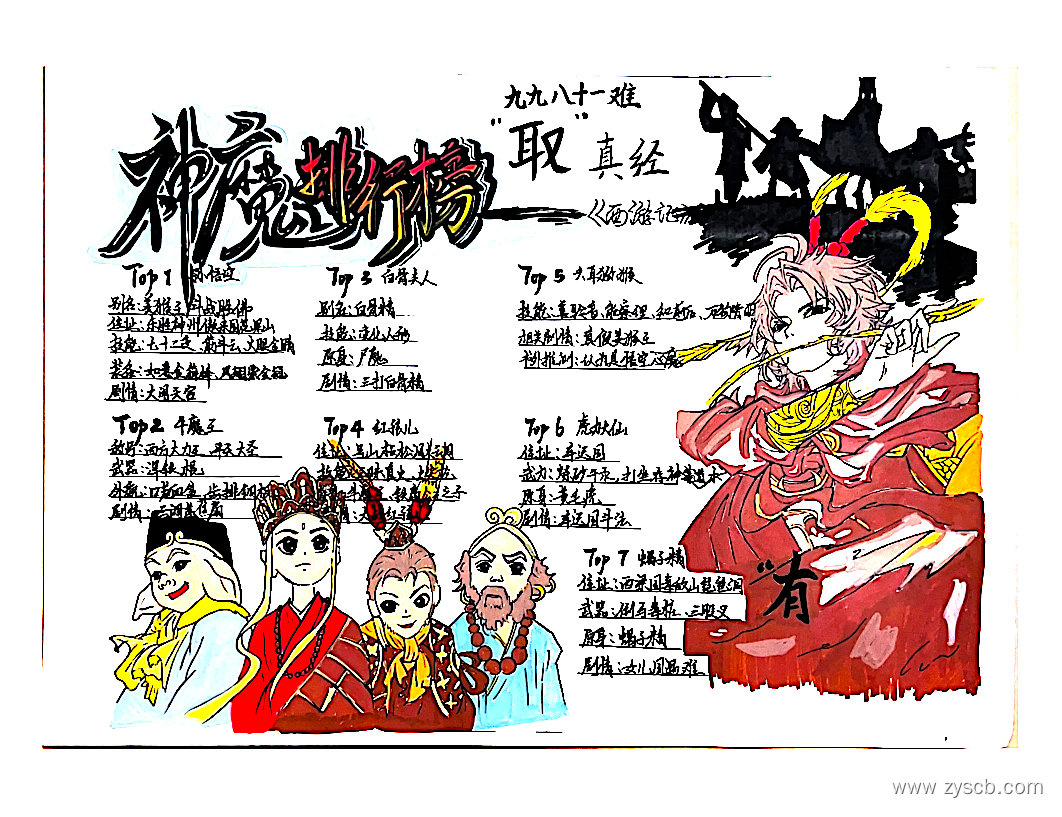 九九八十一难
"取"真经
《西游记》
神魔排行榜
Top 1 孙悟空
别名:美猴王 斗战胜佛
住址:东胜神州傲来国花果山
技能:七十二变、筋斗云、火眼金睛
装备:如意金箍棒、凤翅紫金冠
剧情:大闹天宫
Top2 牛魔王
称号:西方大力王、平天大圣
武器:混铁棍
外貌:口若血盆、齿排铜板
剧情:三调芭蕉扇
Top 3 白骨夫人
别名:白骨精
技能:变化人形
原身:尸魔
剧情:三打白骨精
Top 4 红孩儿
住址:号山枯松涧火云洞
技能:三昧真火、
Top 5 六耳猕猴
技能:善聆音、能察理、知前后、万物皆明
相关剧情:真假美猴王
Top 6 虎力大仙
住址:车迟国
原身:黄毛虎
剧情:车迟国斗法
Top 7 蝎子精
住址:西梁国毒敌山琵琶洞
武器:倒马毒桩、三股叉
原身:蝎子精
剧情:女儿国遇难
"有
www.zyscb.com